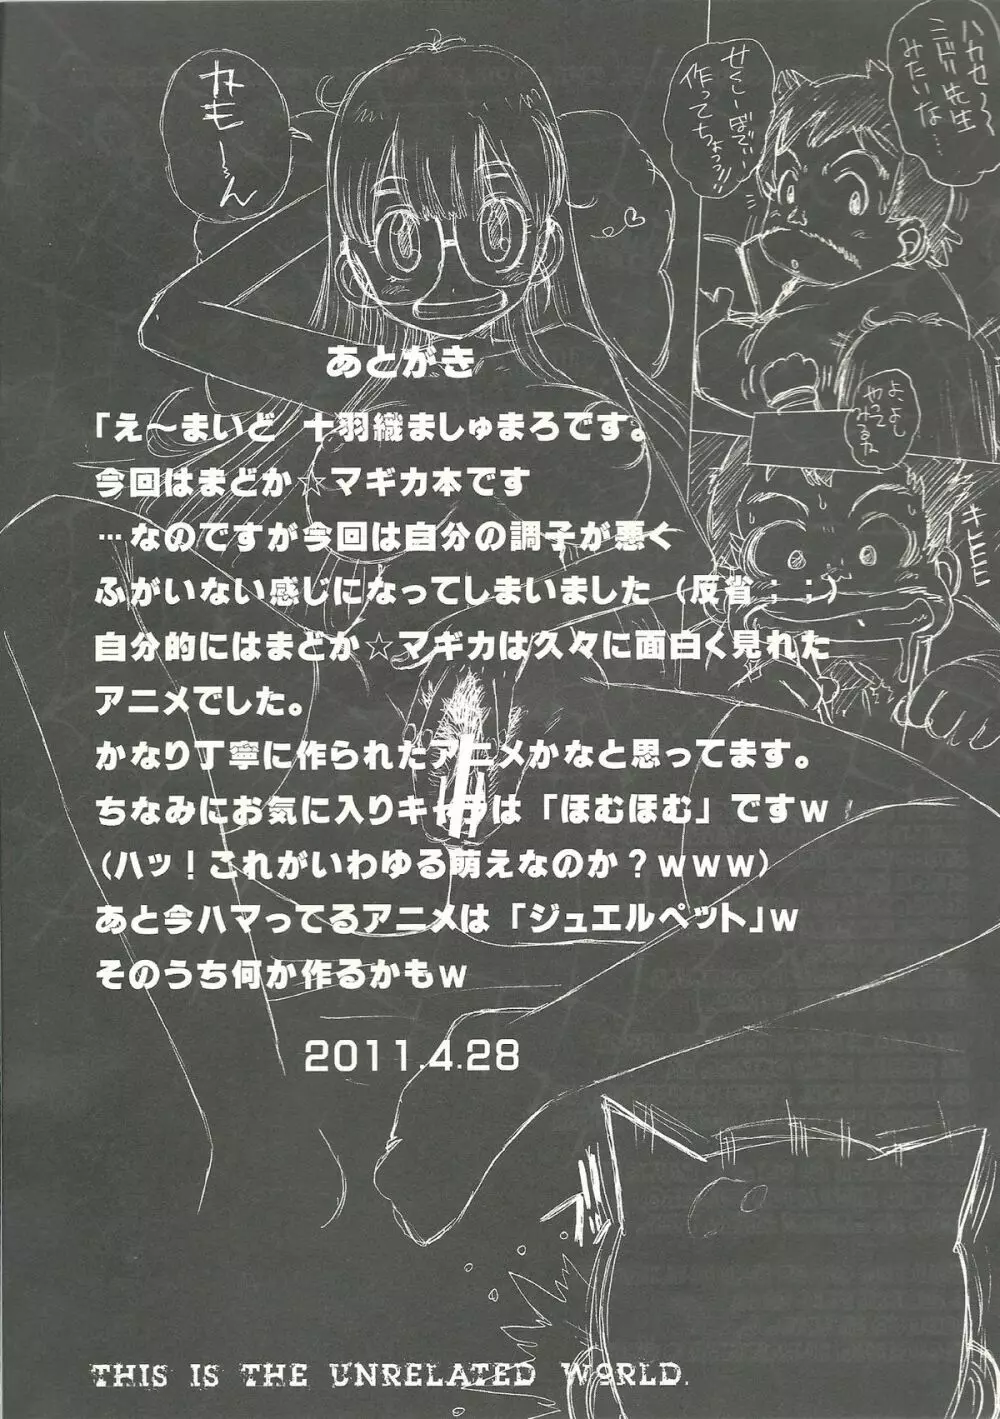 あとがき
「え～まいど 十羽織ましゅまろです。
今回はまどか☆マギカ本です
…なのですが今回は自分の調子が悪く
ふがいない感じになってしまいました（反省；；）
自分的にはまどか☆マギカは久々に面白く見れた
アニメでした。
かなり丁寧に作られたアニメかなと思ってます。
ちなみにお気に入りキャラは「ほむほむ」ですｗ
（ハッ！これがいわゆる萌えなのか？ｗｗｗ）
あと今ハマってるアニメは「ジュエルペット」ｗ
そのうち何か作るかもｗ
2011.4.28
THIS IS THE UNRELATED WORLD.
ハカセ～
ミドリ先生
みたいな……
せくしーぼでぃー
作ってちょっ!!
かも～ん